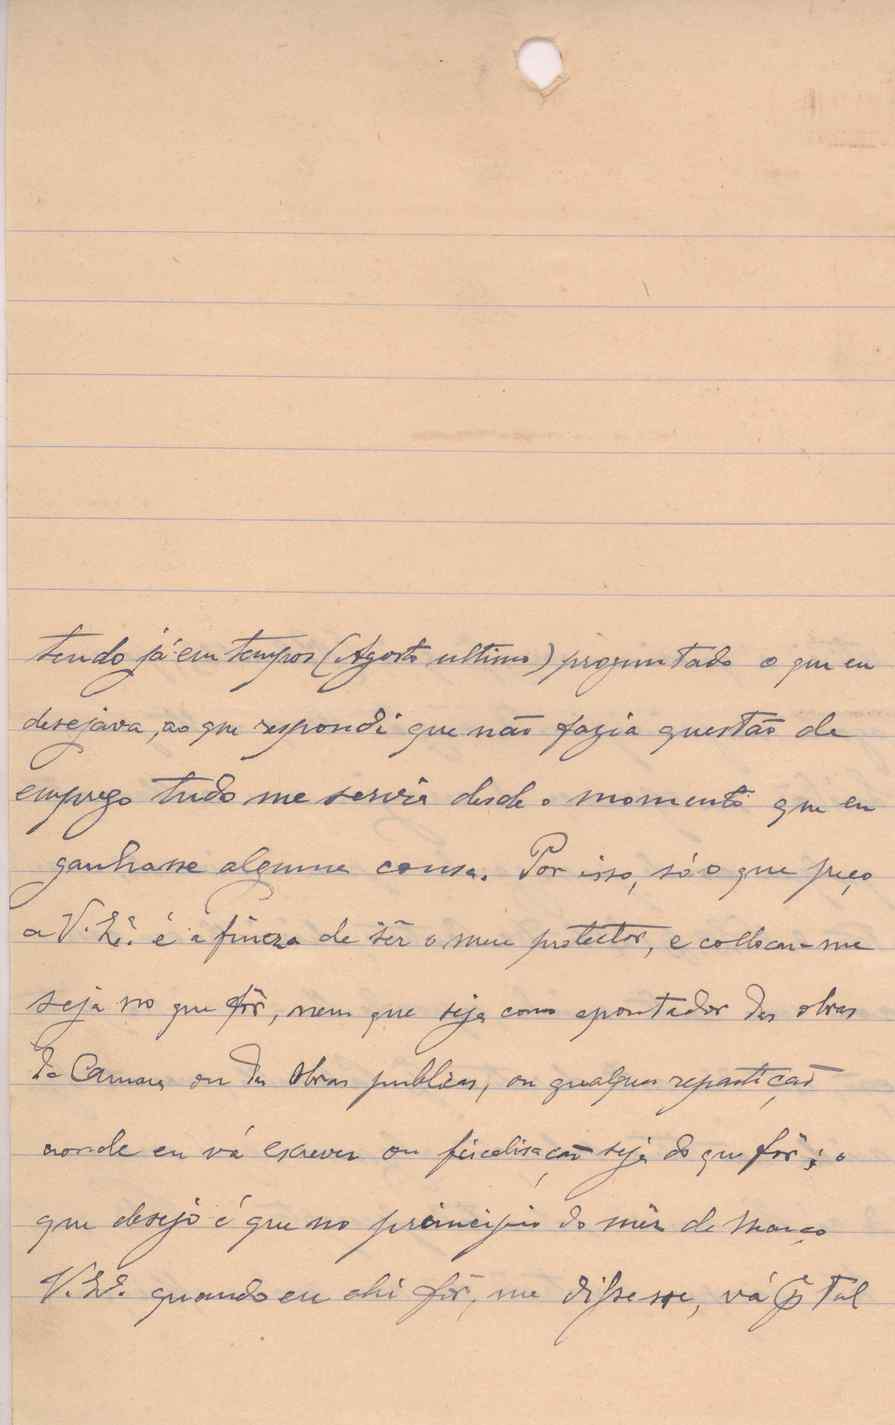 tendo já em tempos (Agosto ultimo) preguntado o que eu
desejava, ao que respondi que não fazia questão de
emprego tudo me servia desde o momento que eu
ganhasse alguma cousa. Por isso, só o que peço
a V. Ex.ª é a fineza de sêr o meu protector, e collocar-me
seja no que fôr, nem que seja como apontador das obras
da Camara ou das Obras publicas, ou qualquer repartição
aonde eu vá escrever ou fiscalisação seja do que fôr; o
que desejo é que no principio do mês de Março
V. Ex.ª quando eu ahi fôr, me dissesse, vá p tal